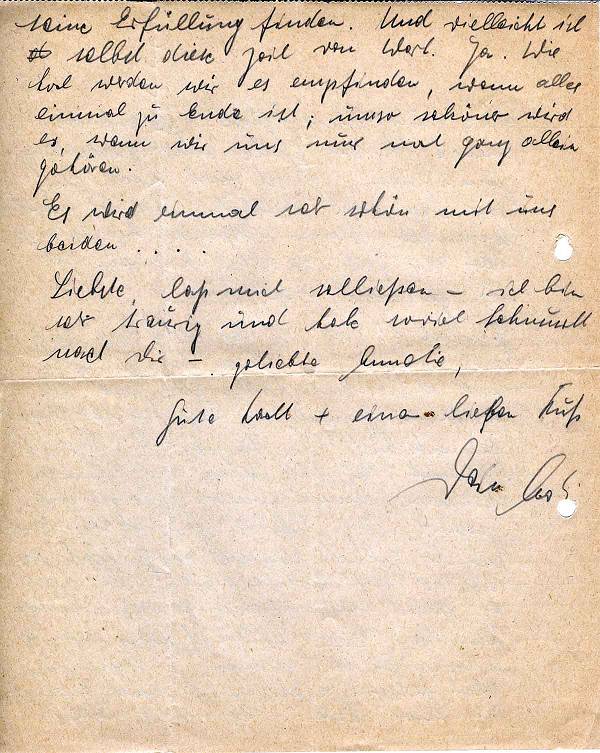 seine Erfüllung finden. Und vielleicht ist
selbst diese Zeit von Wert. Ja. Wie
werden wir es empfinden, wenn alles
einmal zu Ende ist; umso schöner wird
es, wenn wir uns mal ganz allein
gehören.
Es wird einmal sehr schön mit uns
beiden . . . .
Liebste, laß mich schließen – ich bin
sehr traurig und habe soviel Sehnsucht
nach Dir – geliebte
Gute Nacht + einen lieben Kuß
Dein